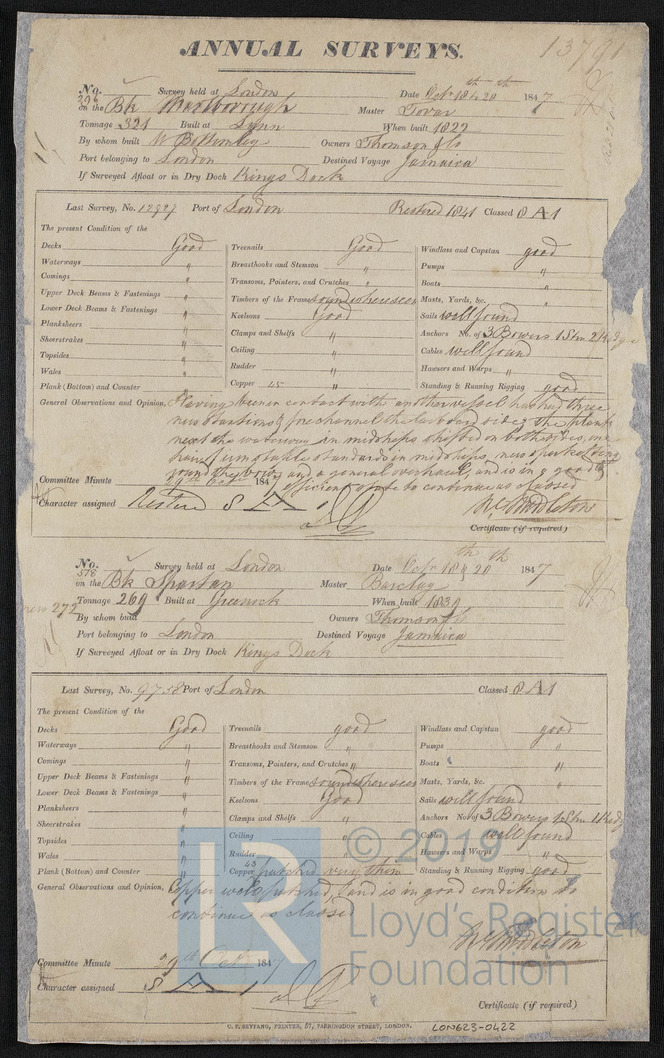 13791
ANNUAL SURVEYS.
No. 396 Survey held at London Date Octr 18 & 20th 1847
on the Bk Marlborough Master Tovar
Tonnage 321 Built at Lynn When built 1822
By whom built W Bottomley Owners Thomson & Co
Port belonging to London Destined Voyage Jamaica
If Surveyed Afloat or in Dry Dock Kings Dock
Last Survey, No. 12927 Port of London Restored 1841 Classed 8 A 1
The present Condition of the
Decks Good Treenails Good Windlass and Capstan good
Waterways " Breasthooks and Stemson " Pumps "
Comings " Transoms, Pointers, and Crutches " Boats "
Upper Deck Beams & Fastenings " Timbers of the Frame sound where seen Masts, Yards, &c. "
Lower Deck Beams & Fastenings " Keelsons Good Sails well found
Planksheers " Clamps and Shelfs " Anchors No. of 3 Bowers 1 Stm 2 Kedge
Sheerstrakes " Ceiling " Cables well found
Topsides " Rudder " Hawsers and Warps "
Wales " Copper 45 " Standing & Running Rigging good
Plank (Bottom) and Counter "
General Observations and Opinion, Having been in contact with another vessel has had three
new stantions & fore channel the larboard side, the plank
next the waterway in midships shifted on both sides,
standards in midships, new
round the bows and a general overhaul, and is in a good &
efficient state to continue as classed
Committee Minute 29th Octr 184
Character assigned Restored 8 A 1
Certificate (if required)
No. 518 Survey held at London Date Octr 18 & 20th 1847
on the Bk Spartan Master Barclay
new 272
Tonnage 269 Built at Greenock When built 1839
By whom built Owners Thomson & Co
Port belonging to London Destined Voyage Jamaica
If Surveyed Afloat or in Dry Dock Kings Dock
Last Survey, No. 9758 Port of London Classed 8 A 1
The present Condition of the
Decks Good Treenails good Windlass and Capstan good
Waterways " Breasthooks and Stemson " Pumps "
Comings " Transoms, Pointers, and Crutches " Boats "
Upper Deck Beams & Fastenings " Timbers of the Frame sound where seen Masts, Yards, &c. "
Lower Deck Beams & Fastenings " Keelsons Good Sails well found
Planksheers " Clamps and Shelfs " Anchors No. of 3 Bowers 1 Stm 1 Kedg
Sheerstrakes " Ceiling " Cables well found
Topsides " Rudder " Hawsers and Warps "
Wales " Copper 43 patched very thin Standing & Running Rigging good
Plank (Bottom) and Counter "
General Observations and Opinion, Copper well patched, and is in good condition to
continue as classed
© 2019
Lloyd's Register
Foundation
Committee Minute 29th Octr 184
Character assigned 8 A 1
Certificate (if required)
C. F. SEYFANG, PRINTER, 57, FARRINGDON STREET, LONDON.
LON623-0422